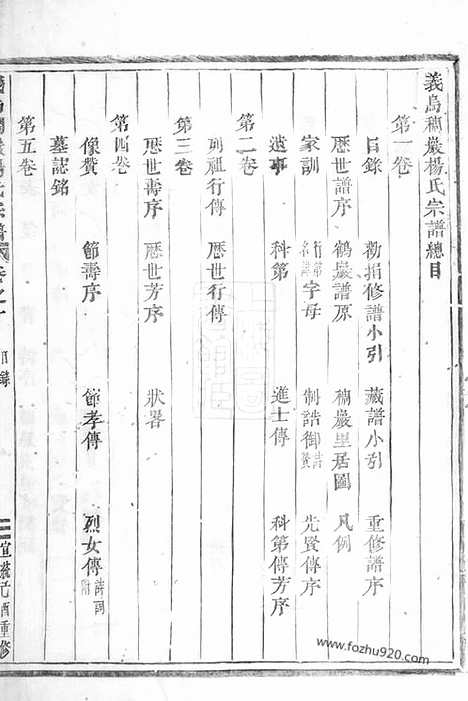 義烏稠巖楊氏宗譜總目
第一卷
目錄 勸捐修譜小引 藏譜小引 重修譜序
歷世譜序 鶴巖譜原 稠巖里居圖 凡例
家訓 字母 制誥御 先賢傳序
遺事 科第 進士傳 科第傳芳序
第二卷
列祖行傳 歷世行傳
第三卷
歷世壽序 歷世芳序 狀畧
第四卷
像贊 節壽序 節孝傳 烈女傳
墓誌銘
第五卷
目錄 宣統元酒重修
www.fozhu920.com